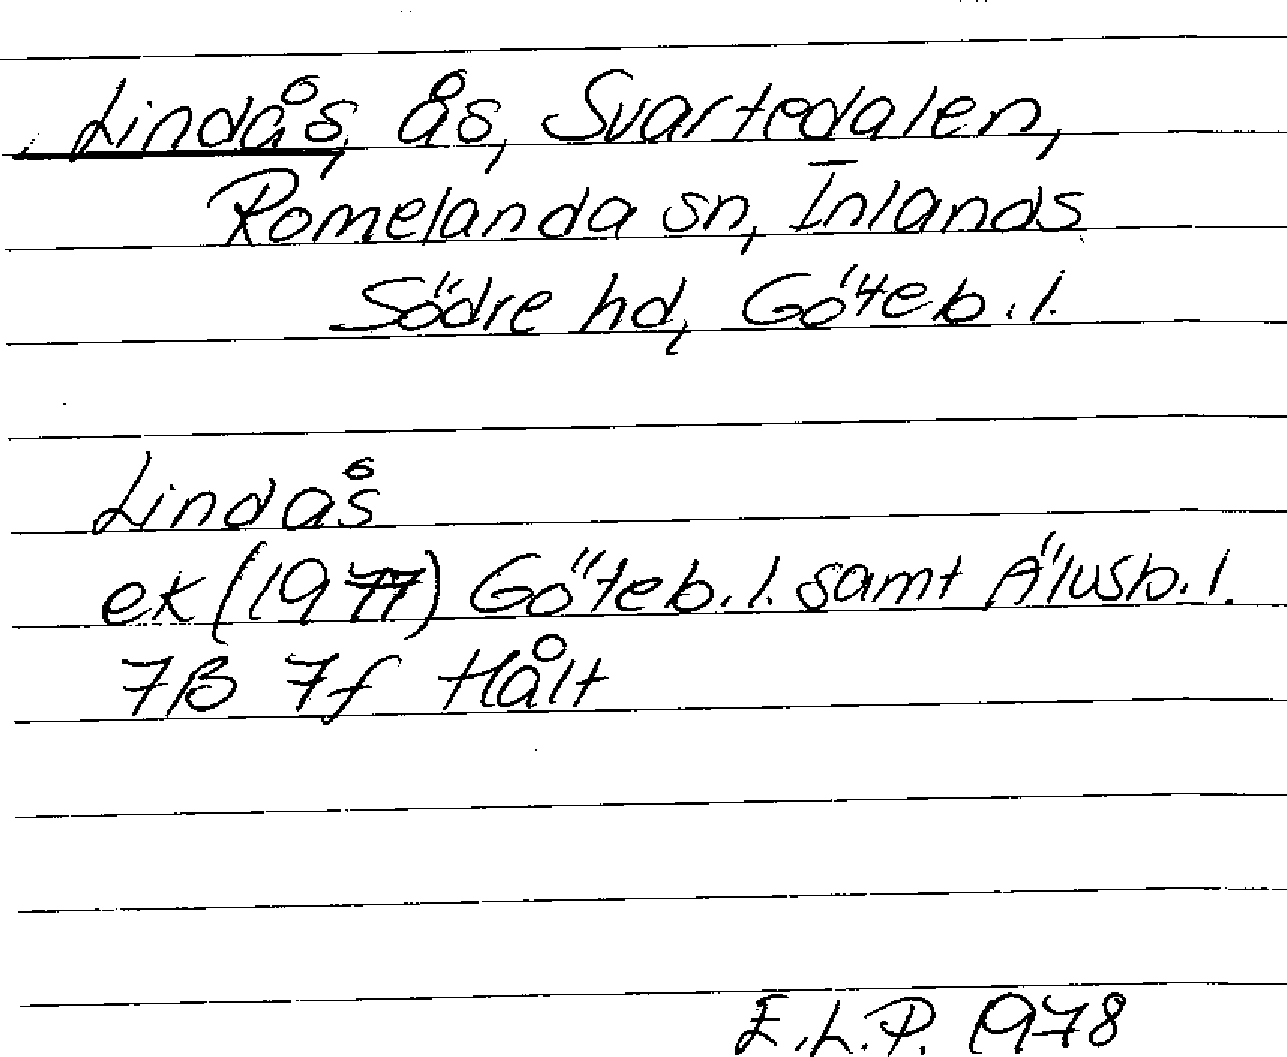 Lindås, ås, Svartedalen,
Romelanda sn, Inlands
Södre hd, Göteb. l.
Lindås
ek (1977) Göteb. l. samt Älvsb. l.
7B 7f Hålt
E.L.P. 1978